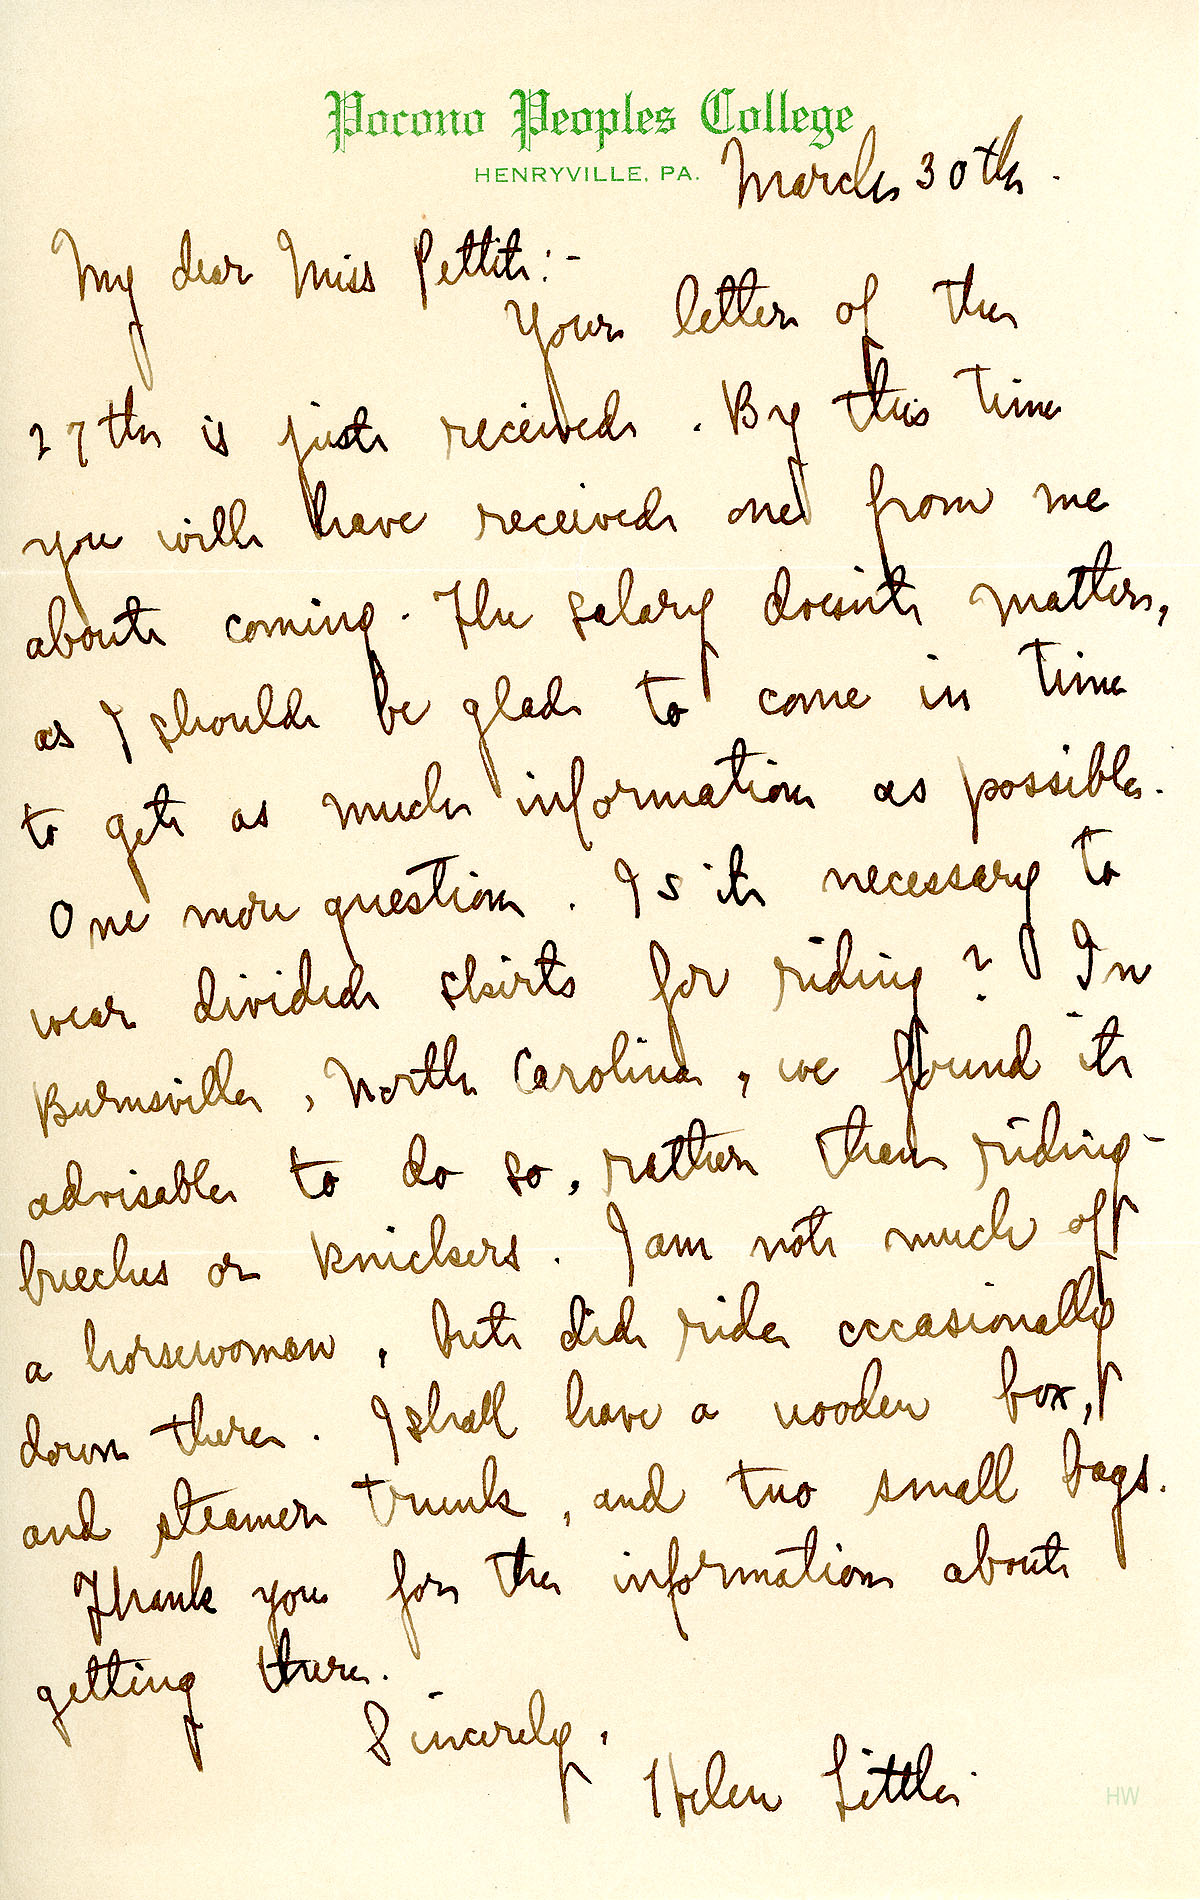 Pocono Peoples College
HENRYVILLE, PA.
March 30th.
My dear Miss Pettit:-
Your letter of the
27th is just received. By this time
you will have received one from me
about coming. The salary doesn't matter,
as I should be glad to come in time
to get as much information as possible.
One more question. Is it necessary to
wear divided skirts for riding? In
Burnsville, North Carolina, we found it
advisable to do so, rather than riding-
breeches or knickers. I am not much of
a horsewoman, but did ride occasionally
down there. I shall have a wooden box,
and steamer trunk, and two small bags.
Thank you for the information about
getting there.
Sincerely,
Helen Little.
HW